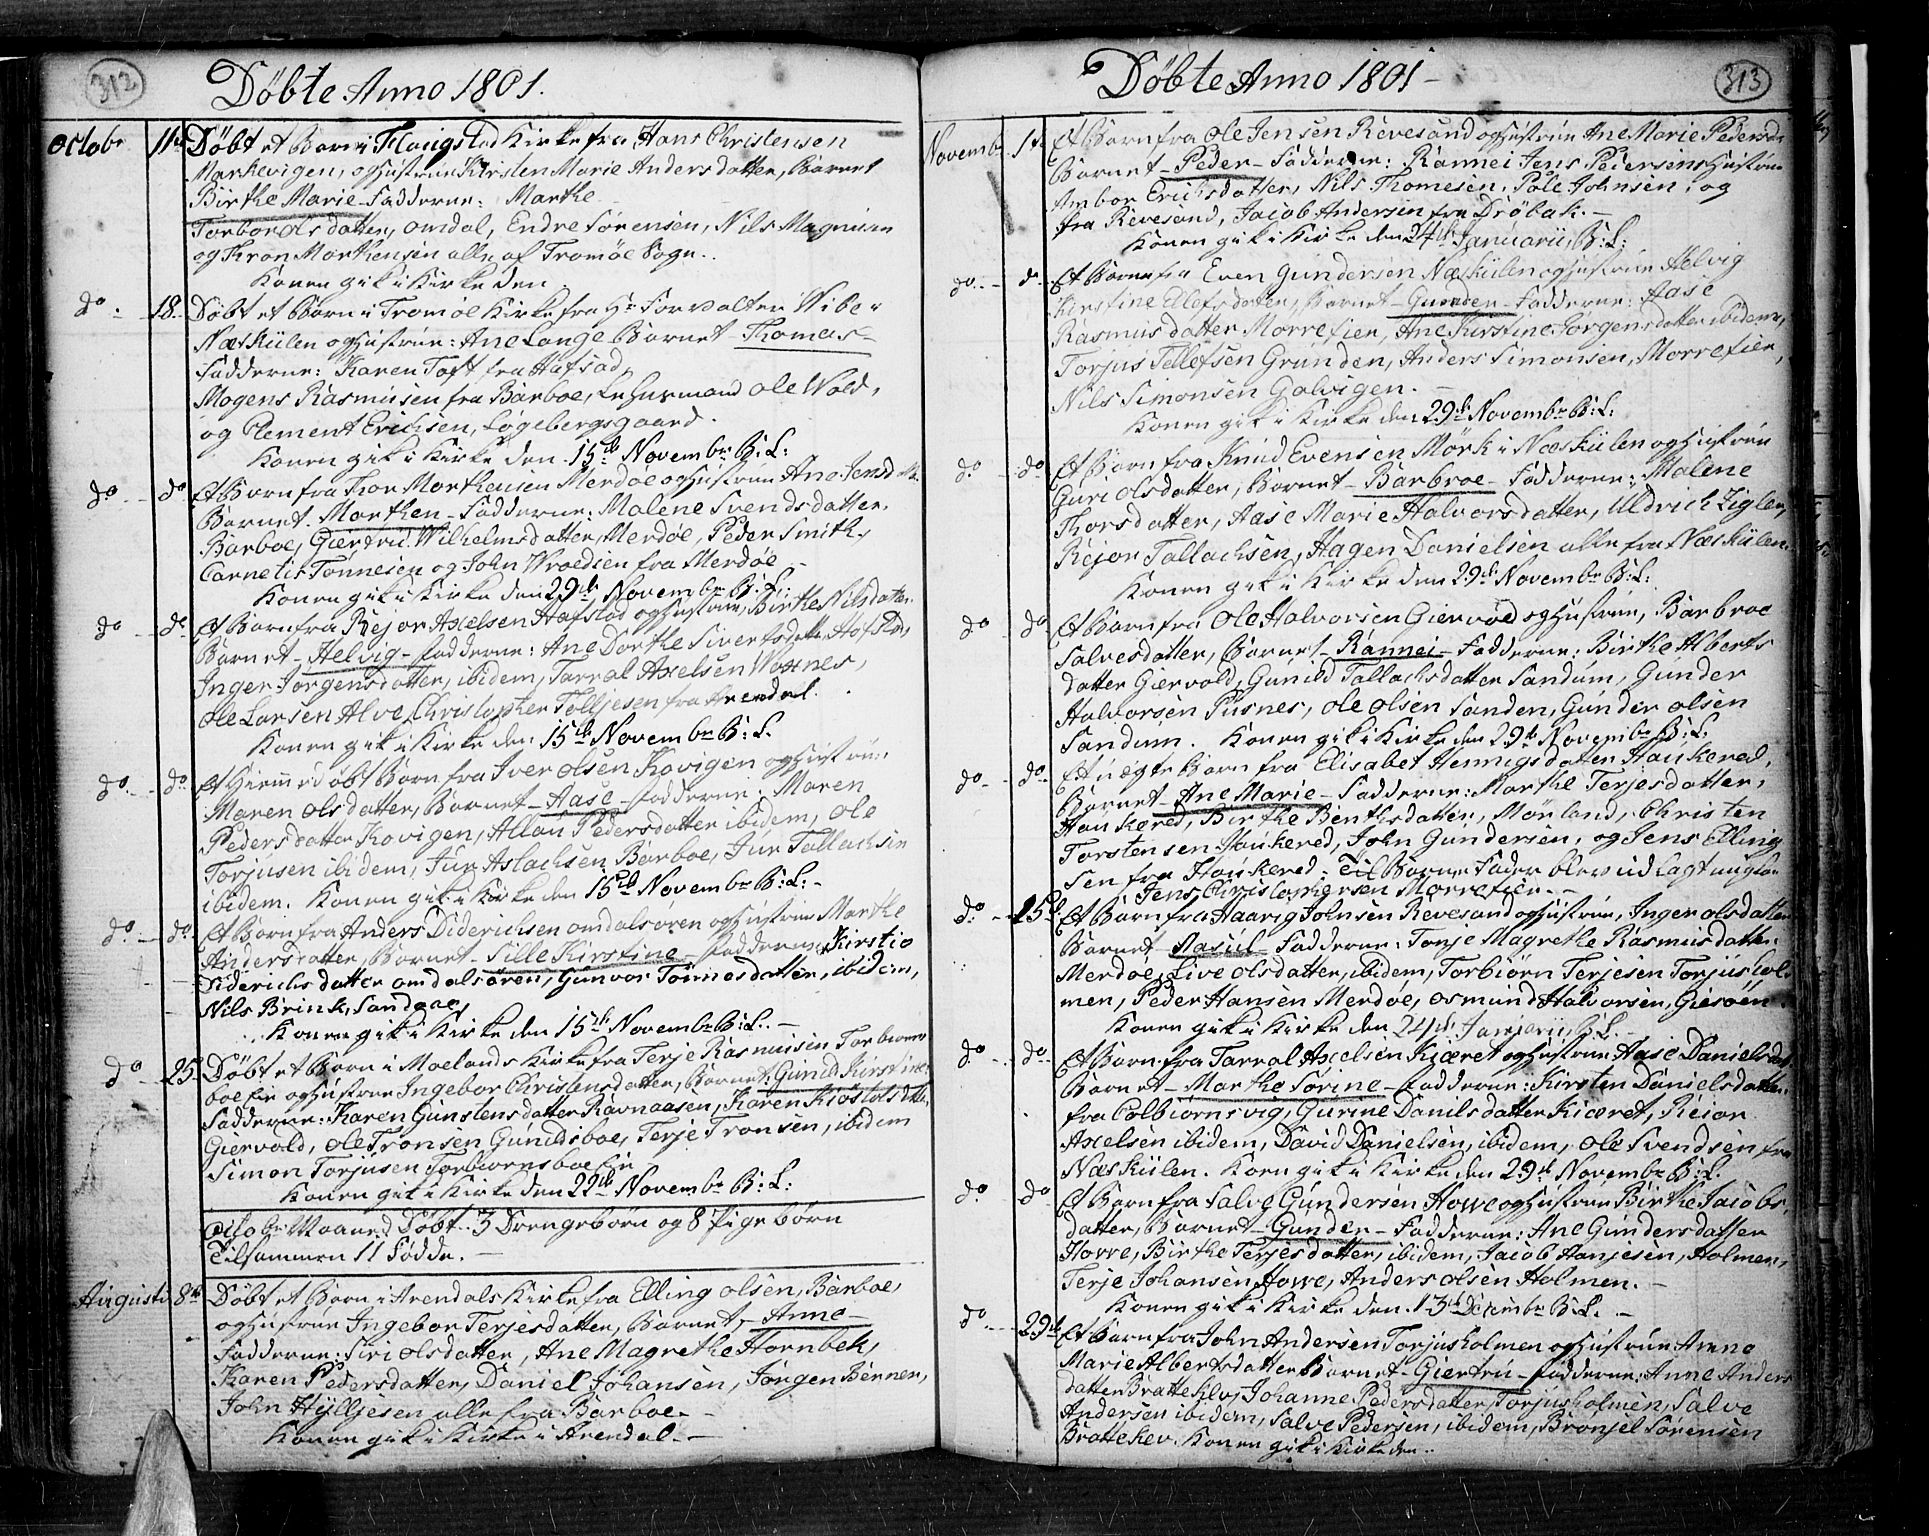 312
Döbte Anno 1801.
Octobr 11te Döbt et Barn i Flougstad Kirke fra Hans Christensen
Markevigen, og Hustrue Kirsten Marie Anders datter, Barnet
Birthe Marie Fadderne: Marthe
Torbor Ols datter, Omdal, Endre Sörensen, Nils Magnusen
og Thron Morthensen alle af Tromöe Sogn.
Konen gik i Kirke den
do. 18. Döbt et Barn i Tromöe Kirke fra Hr Forvalter Wibe i
Næskülen og Hustrue: Ane Lange Barnet Thomas
Fadderne: Karen Toft fra Hafsad,
Mogens Rasmusen fra Barboe, Ole Wold,
og Clement Erichsen, Lögebergsgaard.
Konen gik i Kirke den 15de Novembr B: L:
do do Et Barn fra Thor Morthensen Merdöe og Hustrue Ane Jensdatter
Barnet Morthen Fadderne: Malene Svends datter,
Barboe, Giertrud Wilhelmsdatter, Merdöe, Peder Smith,
Carnelis Tönnesen og John Wroldsen fra Merdöe
Konen gik i Kirke den 29de Novembr B: L:
do do Et Barn fra Rejor Axelsen Hafstad og Hustrue, Birthe Nilsdatter
Barnet Helvig Fadderne: Ane Dorthe Siverts datter Hofstad,
Inger Jörgensdatter, ibidem, Tarral Axelsen Woxnes,
Ole Larsen Alve, Christopher Tolljesen fra Arendal.
Konen gik i Kirke den 15de Novembr B: L.
do. do. Et Hiemmedöbt Barn fra Iver Olsen Kovigen og Hustrue
Maren Olsdatter, Barnet Aase Fadderne: Maren
Peders datter Kovigen, Allau Peders datter ibidem, Ole
Torjusen ibidem, Jur Aslachsen Barboe, Jur Tallachsen
ibidem. Konen gik i Kirke den 15de Novembr B: L:
do. do. Et Barn fra Anders Diderichsen Omdalsören og Hustrue Marthe
Anders datter, Barnet Sille Kirstine Fadderne: Kirstie
Diderichs datter Omdalsören, Gunvor Tönnesdatter, ibidem,
Nils Brink, Sandene,
Konen gik i Kirke den 15de Novembr B: L.
do 25. Döbt et Barn i Moelands Kirke fra Terje Rasmusen Torbiorns
boefie og Hustrue Ingebor Christens datter, Barnet: Gunild Kirstine
Fadderne: Karen Gunstens datter Ravnaasen, Karen Kiöstolsdatter,
Giervold, Ole Tronsen Gunildsboe, Terje Tronsen, ibidem
Simon Torjusen Torbiornsboefie
Konen gik i Kirke den 22de Novembr B: L:
Octobr Maaned Döbt 3 Drengebörn og 8 Pigebörn
Tilsammen 11 Födde.
Augusti 8de Döbt et Barn i Arendals Kirke fra Elling Olsen, Barboe,
og Hustrue Ingebor Terjesdatter, Barnet, Anne
Fadderne: Siri Olsdatter, Ane Magrethe Hornbek,
Karen Pedersdatter, Daniel Johansen, Jörgen Benner,
John Hylljesen alle fra Barboe.
Konen gik i Kirke i Arendal.
313
Döbte Anno 1801
Novembr 1te Et Barn fra Ole Jensen Revesand og Hustrue Ane Marie Pedersdr
Barnet Peder Fadderne: Rannei Jens Pedersens Hustrue
Ambor Erichsdatter, Nils Thomesen, Pole Johnsen, og
fra Revesand, Jacob Andersen fra Dröbak.
Konen gik i Kirke den 24de Januarii, B: L:
do. do Et Barn fra Even Gundersen Næskülen og Hustrue Helvig
Kirstine Ellefsdatter, Barnet Gunder Fadderne: Aase
Rasmusdatter Morrefier, Ane Kirstine Jörgensdatter ibidem,
Torjus Tellefsen Grunden, Anders Simonsen, Morrefier,
Nils Simonsen Galvigen.
Konen gik i Kirke den 29de Novembr B: L:
do do Et Barn fra Knud Evensen Mörk i Næskülen og Hustrue
Guri Olsdatter, Barnet Barbroe Fadderne: Malene
Thorsdatter, Aase Marie Halvorsdatter, Uldrich Zigler,
Rejor Tallachsen, Hagen Danielsen alle fra Næskülen.
Konen gik i Kirke den 29de Novembr B: L:
do do Et Barn fra Ole Halvorsen Giervold og Hustrue, Barbroe
Salvesdatter, Barnet Rannei Fadderne: Birthe Alberts
datter Giervold, Gunild Tallachsdatter Sandum, Gunder
Halvorsen Pusnes, Ole Olsen Sanden, Gunder Olsen
Sandum. Konen gik i Kirke den 29de Novembr B: L:
do do Et uægte Barn fra Elisabet Hennigsdatter Haukered,
Barnet Ane Marie Fadderne: Marthe Terjesdatter,
Haukered, Birthe Benthsdatter, Mörland, Christen
Torstensen Haukered, John Gundersen, og Jens Elling
sen fra Haukered: Til Barne Fader blev udlagt
Jens Christophersen Morrefier.
do. 15de Et Barn fra Haavig Johnsen Revesand og Hustrue, Inger Olsdatter
Barnet Aasul Fadderne: Tonje Magrethe Rasmusdatter
Merdöe, Live Olsdatter, ibidem, Torbiörn Terjesen Torjushol
men, Peder Hansen Merdöe, Osmund Halvorsen, Giesöen.
Konen gik i Kirke den 24de Januarii, B: L.
do do Et Barn fra Tarral Axelsen Kiæret og Hustrue Aase Danielsdatter
Barnet Marthe Sörine Fadderne: Kirsten Danielsdatter
fra Colbiörnsvig, Gurine Danilsdatter Kiæret, Reior
Axelsen ibidem, David Danielsen, ibidem, Ole Svendsen fra
Næskülen. Konen gik i Kirke den 29de Novembr B: L.
do do Et Barn fra Salve Gundersen Howe og Hustrue Birthe Jacobs
datter, Barnet Gunder Fadderne: Ane Gundersdatter
Howe, Birthe Terjesdatter, ibidem, Jacob Hansesen, Holmen,
Terje Johansen Howe, Anders Olsen Holmen.
Konen gik i Kirke den 13de Decembr B: L.
do 29de Et Barn fra John Andersen Torjusholmen og Hustrue Anne
Marie Albertsdatter Barnet Giertru Fadderne: Anne Anders
datter Brattekley, Johanne Pedersdatter, Torjusholmen, Salve
Andersen ibidem, Salve Pedersen, ibidem, Brönjel Sörensen
Brattekley. Konen gik i Kirke den